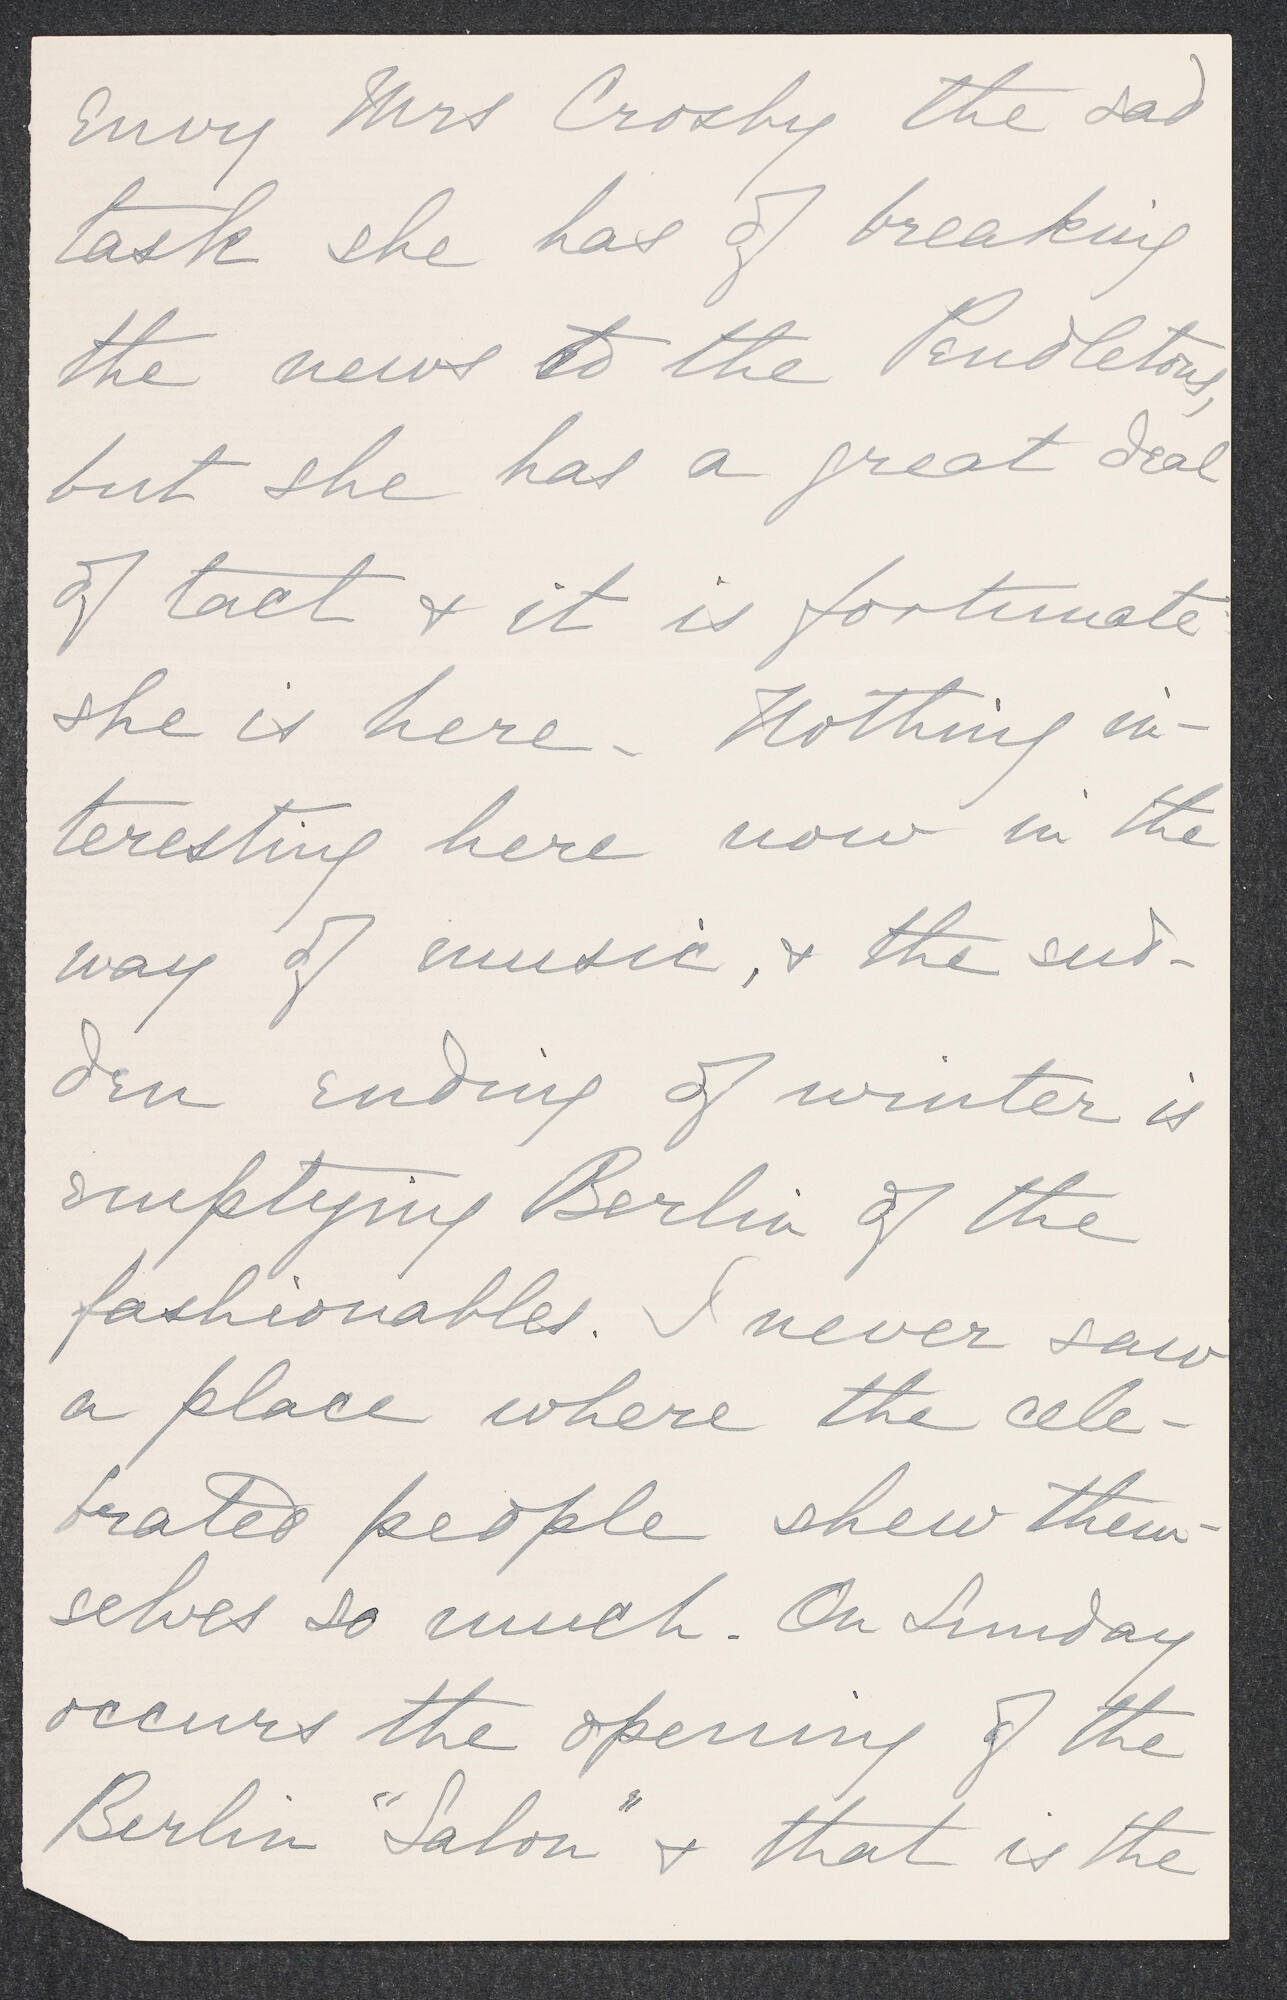 envy Mrs Crosby the sad
task she has of breaking
the news to the Pendletons,
but she has a great deal
of tact & it is fortunate
she is here - Nothing in-
teresting here now in the
way of music, & the sud-
den ending of winter is
emptying Berlin of the
fashionables. I never saw
a place where the cele-
brated people shew them-
selves so much. On Sunday
occurs the opening of the
Berlin "Salon" & that is the